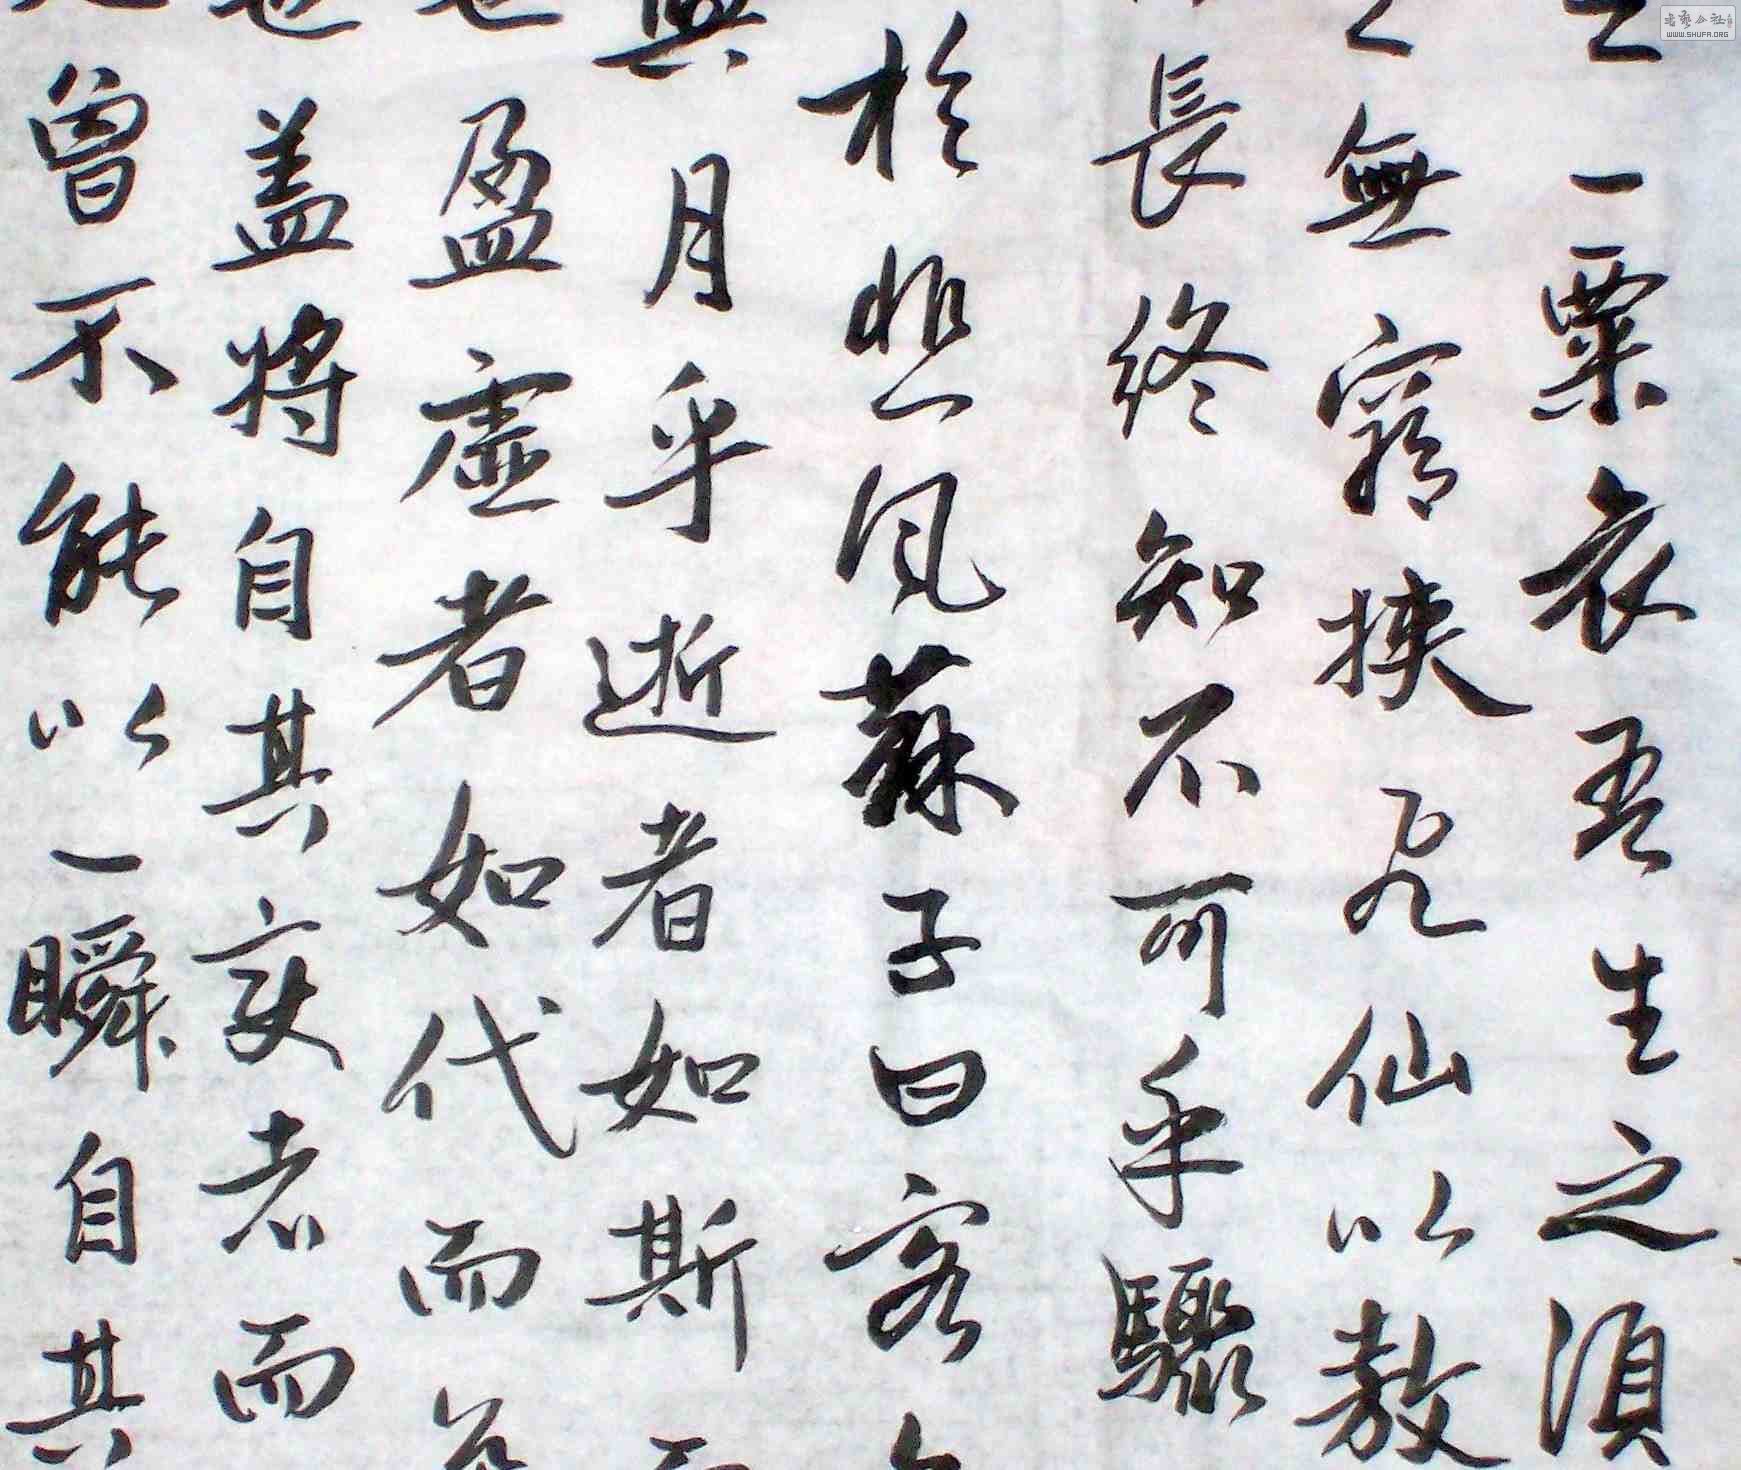 之一粟哀吾生之須
之無窮挾飛仙以敖
長終知不可乎驟
於悲風蘇子曰客
與月乎逝者如斯
也盈虛者如代而
也盖將自其変者而
曾不能以一瞬自其
書藝公社
WWW.SHUFA.ORG